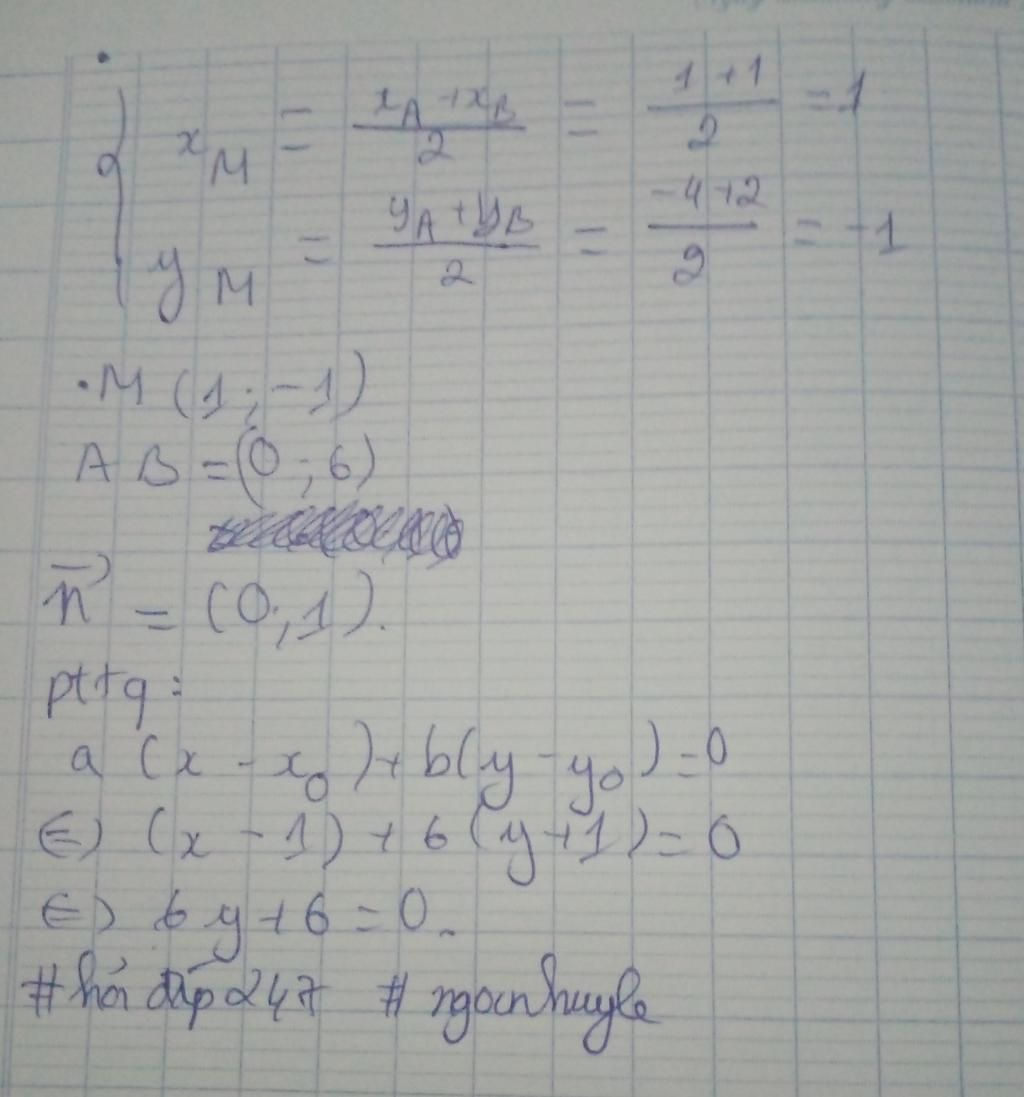 x_M = (x_A + x_B)/2 = (1 + 1)/2 = 1
y_M = (y_A + y_B)/2 = (-4 + 2)/2 = -1
. M (1 ; -1)
AB = (0 ; 6)
n⃗ = (0 ; 1).
pttq :
a (x - x₀) + b(y - y₀) = 0
⇔ (x - 1) + 6 (y + 1) = 0
⇔ 6y + 6 = 0.
# hỏi đáp 247 # ngocnhuyle